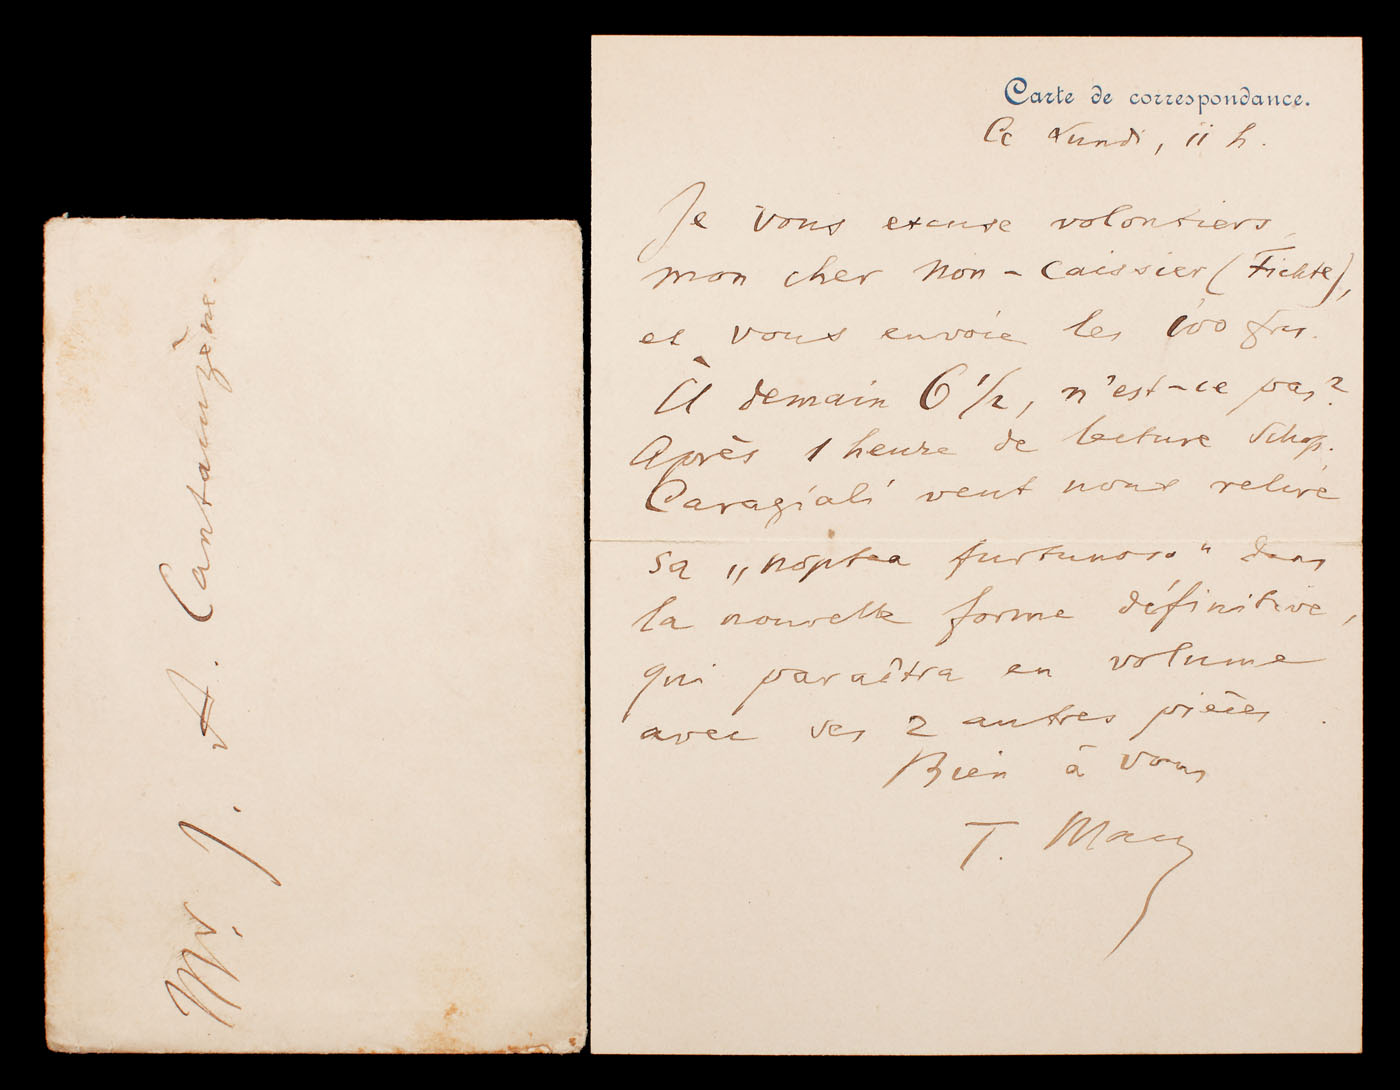 Mr. J. A. Cantacuzène.
Carte de correspondance.
Ce Lundi, 11 h.
Je vous excuse volontiers,
mon cher Non-Caissier (Fichte),
et vous envoie les 100 frs.
À demain 6 1/2, n'est-ce pas?
Après 1 heure de lecture Schop.
Caragiali veut nous relire
sa „noptea furtunosa" dans
la nouvelle forme définitive,
qui paraîtra en volume
avec ses 2 autres pièces.
Bien à vous
T. Maiu